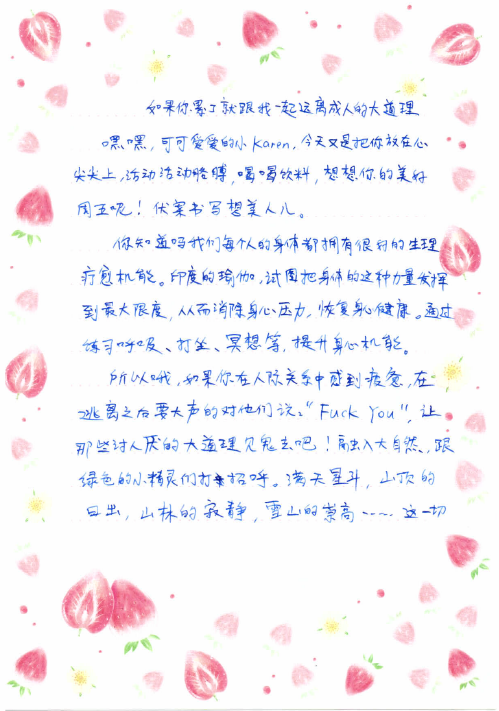 如果你累了就跟我一起远离成人的大道理
嘿嘿，可可爱爱的小Karen，今天又是把你放在心
尖尖上，活动活动胳膊，喝喝饮料，想想你的美好
周五呢！伏案书写想美人儿。
你知道吗我们每个人的身体都拥有很好的生理
疗愈机能。印度的瑜伽，试图把身体的这种力量发挥
到最大限度，从而消除身心压力，恢复身心健康。通过
练习呼吸、打坐、冥想等，提升身心机能。
所以哦，如果你在人际关系中感到疲惫，在
逃离之后要大声的对他们说：“Fuck You”，让
那些讨人厌的大道理见鬼去吧！融入大自然，跟
绿色的小精灵们打招呼。满天星斗，山顶的
日出，山林的寂静，雪山的崇高……这一切